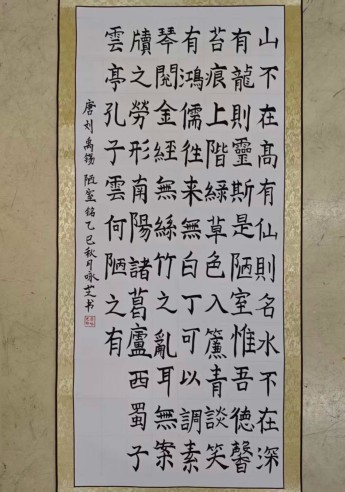 山不在高有仙則名水不在深
有龍則靈斯是陋室惟吾德馨
苔痕上階綠草色入簾青談笑
有鴻儒往来無白丁可以調素
琴閱金經無絲竹之亂耳無案
牘之勞形南陽諸葛廬西蜀子
雲亭孔子雲何陋之有
唐刘禹锡 陋室铭乙巳秋月书